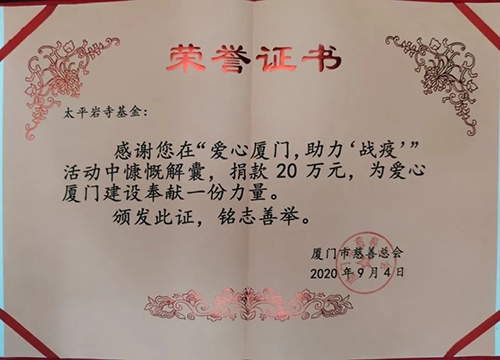 荣誉证书
太平岩寺基金：
感谢您在“爱心厦门,助力‘战疫’”
活动中慷慨解囊，捐款 20 万元，为爱心
厦门建设奉献一份力量。
颁发此证，铭志善举。
厦门市慈善总会
2020 年 9 月 4 日